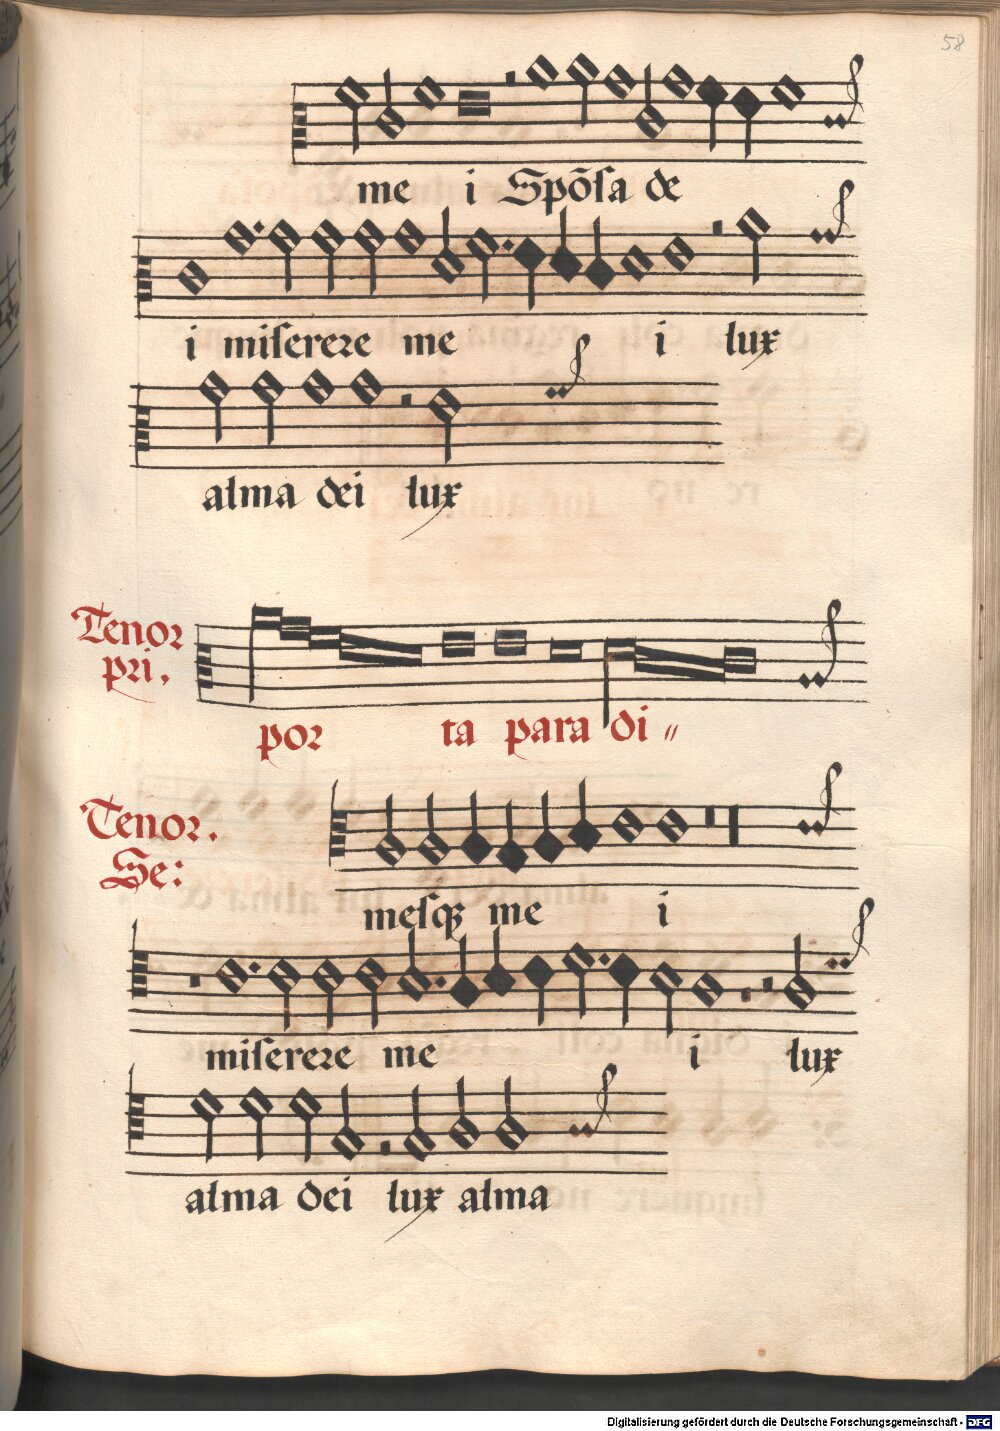 58
me i Spōsa de
i miserere me i lux
alma dei lux
Tenor
pri.
por ta para di〃
Tenor.
Se:
mesqȝ me i
miserere me i lux
alma dei lux alma
Digitalisierung gefördert durch die Deutsche Forschungsgemeinschaft - DFG